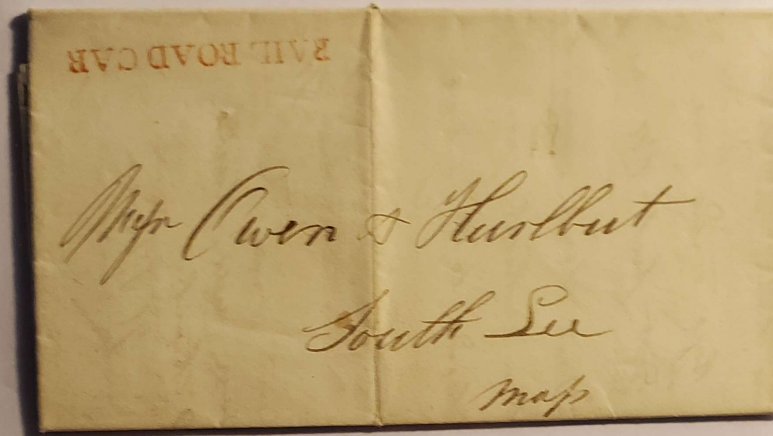 RAIL ROAD CAR
Messrs Owen & Hurlbut
South Lee
Mass